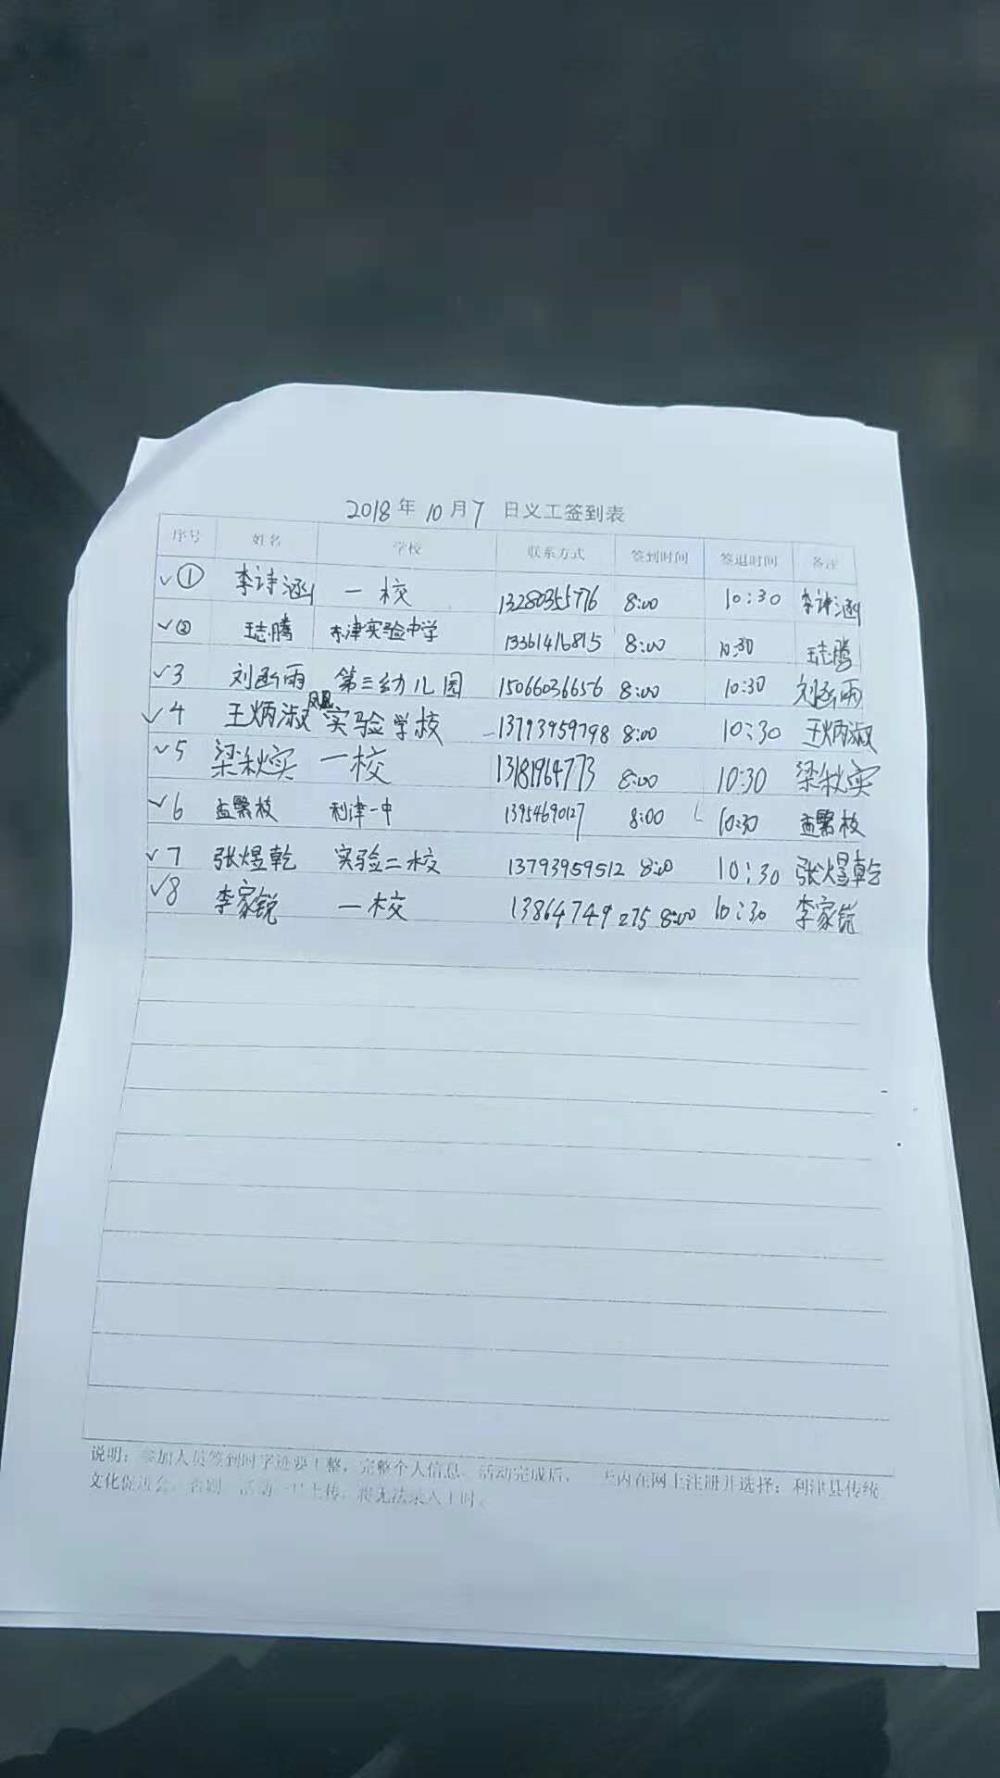 2018年10月7日义工签到表
序号 姓名 学校 联系方式 签到时间 签退时间 备注
✓① 李诗涵 一校 13280355776 8:00 10:30 李诗涵
✓② 王志腾 东津实验中学 13361416815 8:00 10:30 王志腾
✓3 刘函雨 第三幼儿园 15066036656 8:00 10:30 刘函雨
✓4 王炳淑 凤凰实验学校 13793959798 8:00 10:30 王炳淑
✓5 梁秋实 一校 13181964773 8:00 10:30 梁秋实
✓6 孟繁枝 利津一中 13954690127 8:00 10:30 孟繁枝
✓7 张煜乾 实验二校 13793959512 8:00 10:30 张煜乾
✓8 李家锐 一校 13864749275 8:00 10:30 李家锐
说明：参加人员签到时字迹要工整，完整个人信息。活动完成后， 天内在网上注册并选择：利津县传统
文化促进会，否则 活动 上传，将无法录入工时。